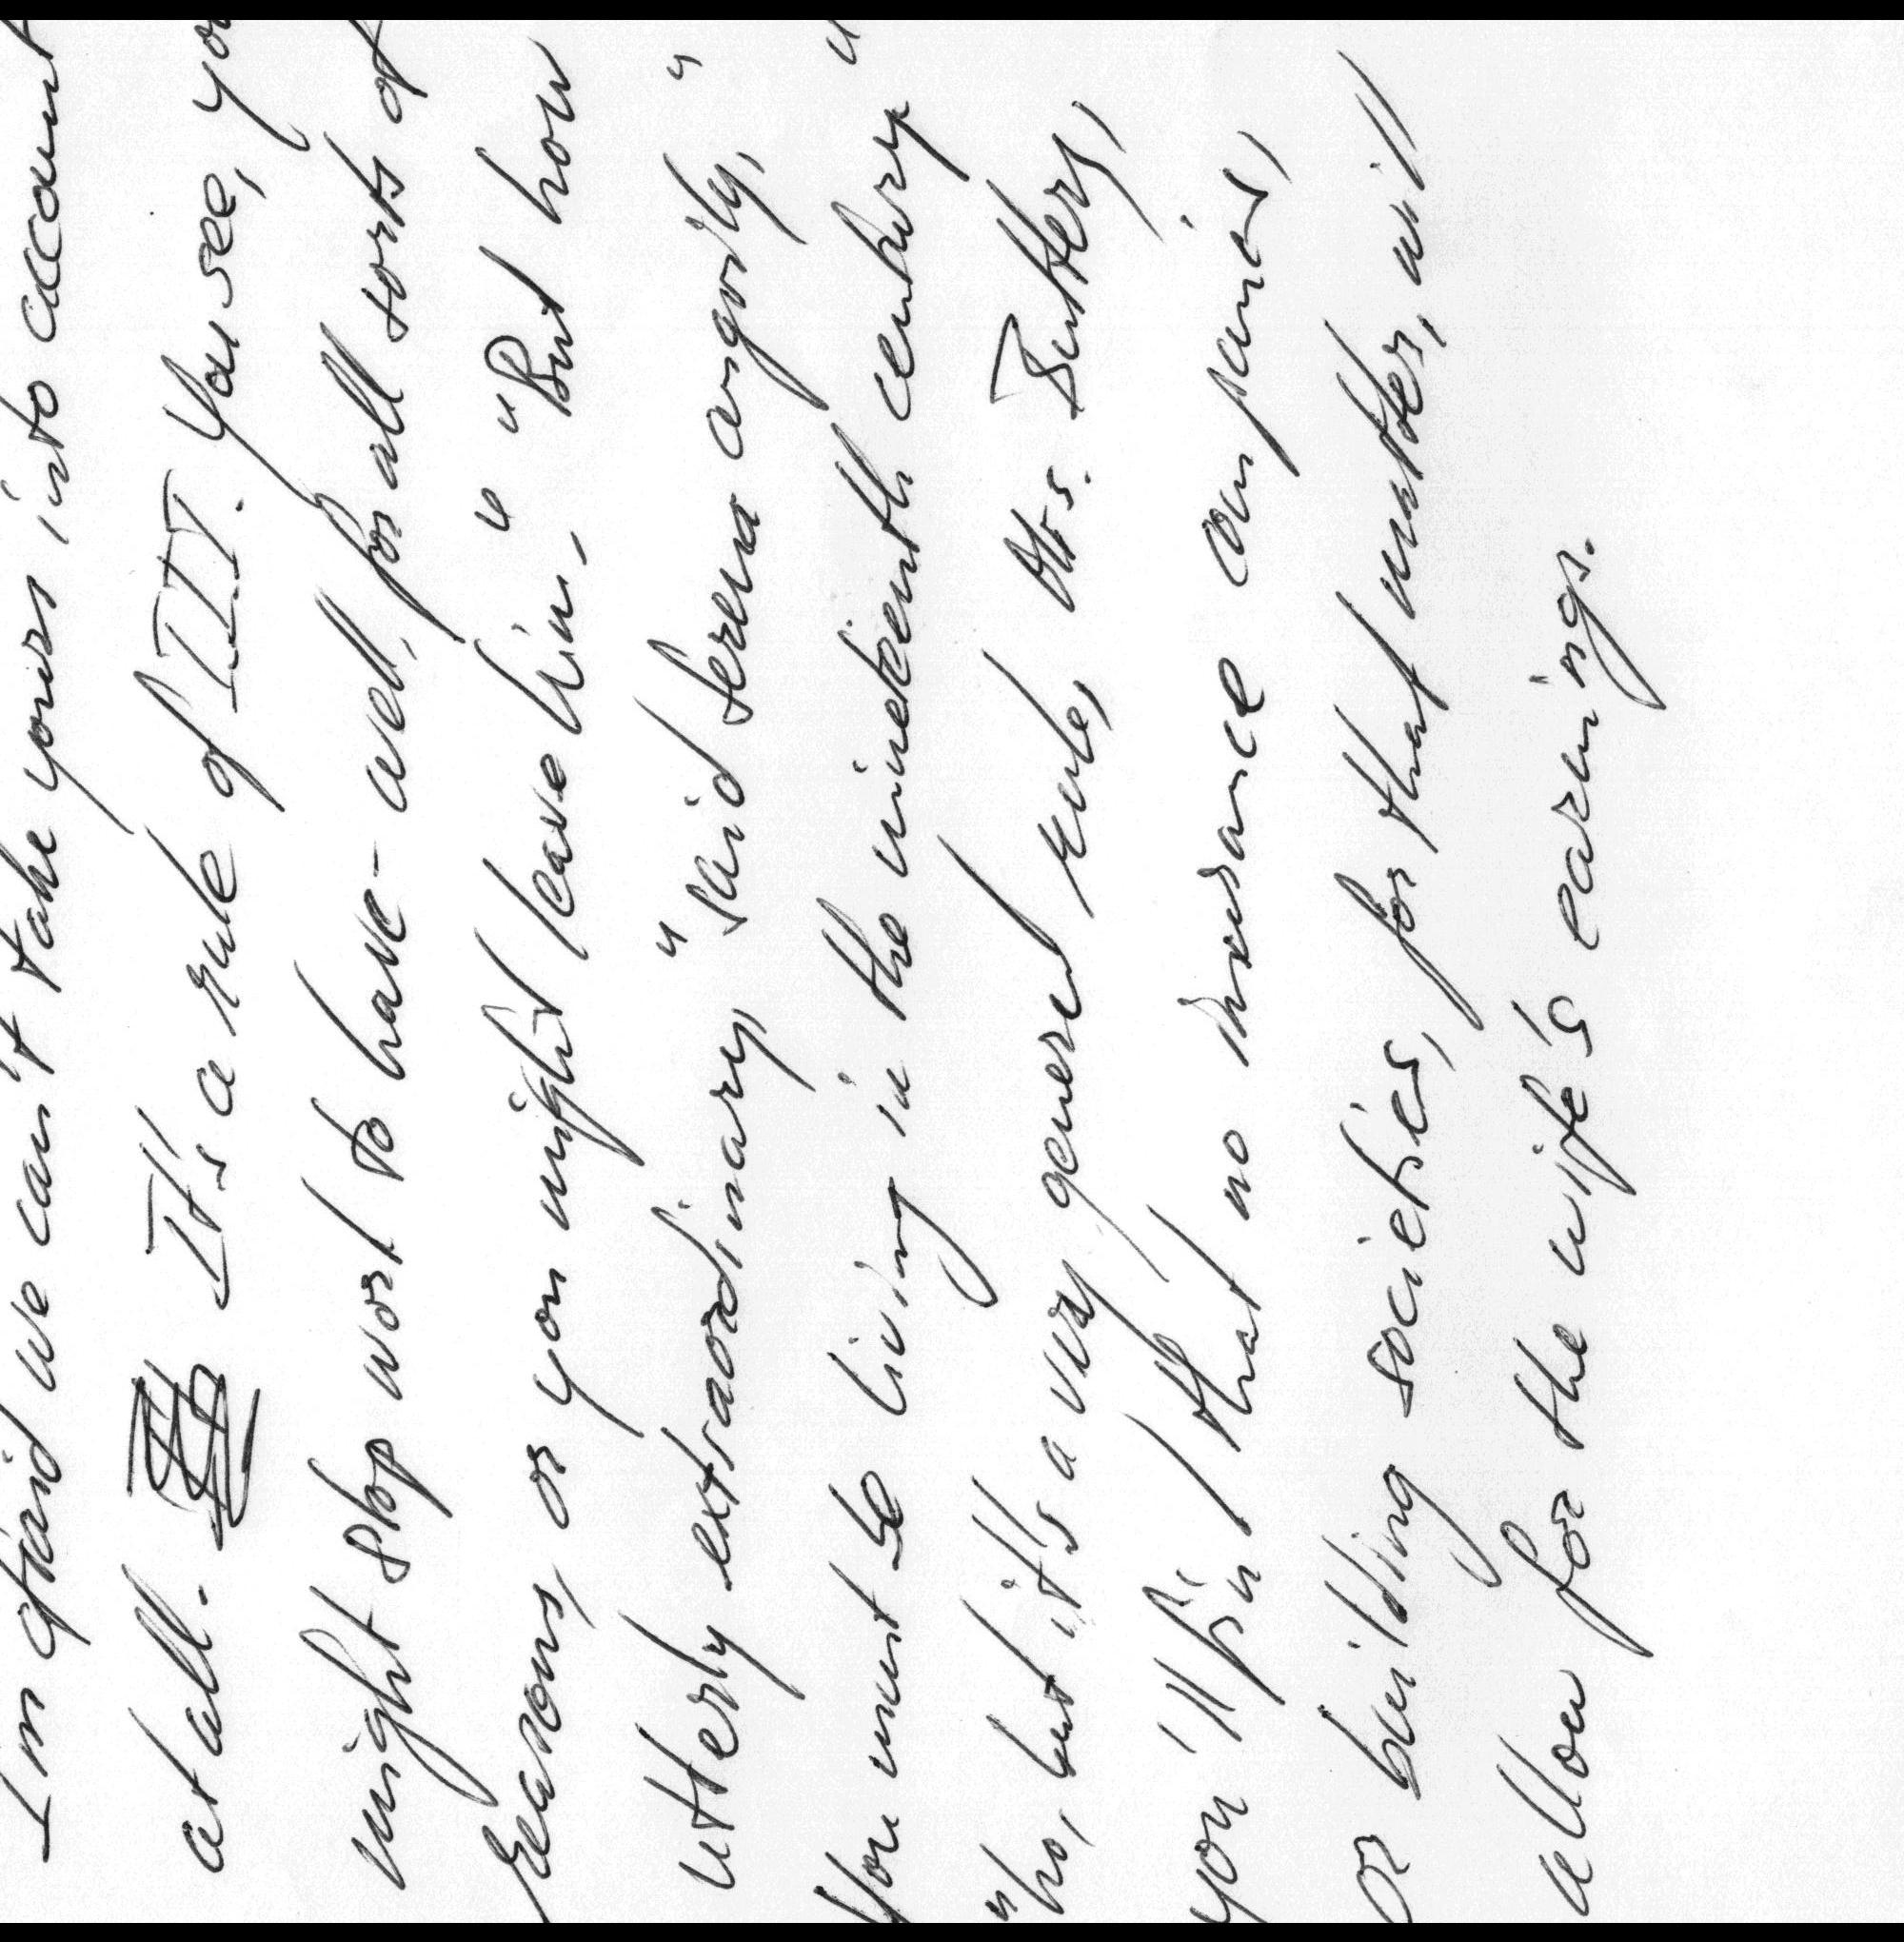 I'm afraid we can't take yours into account
at all. It's a rule of III. You see, you
might stop worl to have - well, for all sorts of
reasons, or you might leave him," "But how
utterly extraordinary," said Serena angrily, "
You must be living in the nineteenth century "
"No, but it's a very general rule, Mrs. Buttery,
you'll find that no insurance companies,
or building societies, for that matter, will
allow for the wife's earnings.